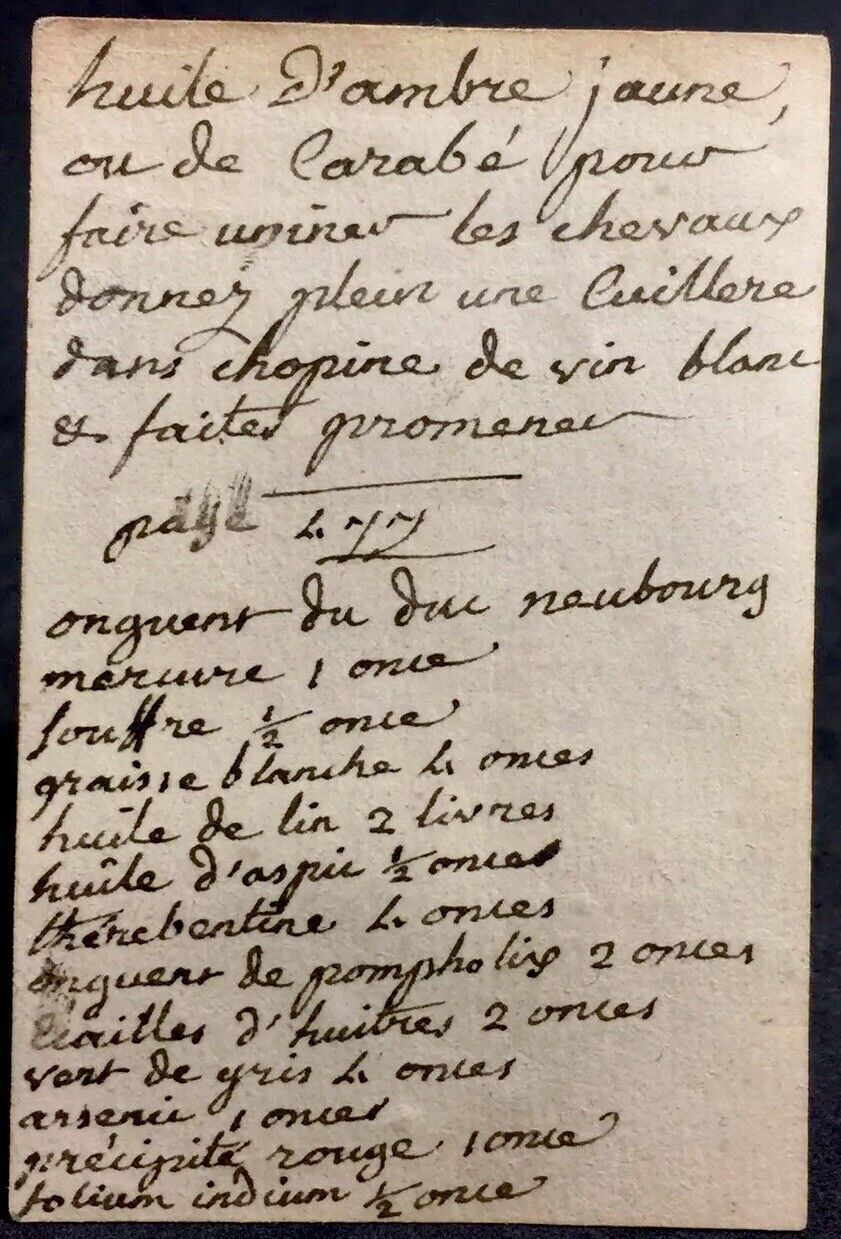 huile d'ambre jaune,
ou de Carabé pour
faire uriner les chevaux
donnez plein une Cuillere
dans chopine de vin blanc
et faites promener
page 477
onguent du duc neubourg
mercure 1 once
souffre ½ once
graisse blanche 4 onces
huile de lin 2 livres
huile d'aspic ½ once
thérebentine 4 onces
onguent de pompholix 2 onces
Ecailles d'huitres 2 onces
vert de gris 4 onces
arsenic 1 onces
précipité rouge 1 once
folium indium ½ once